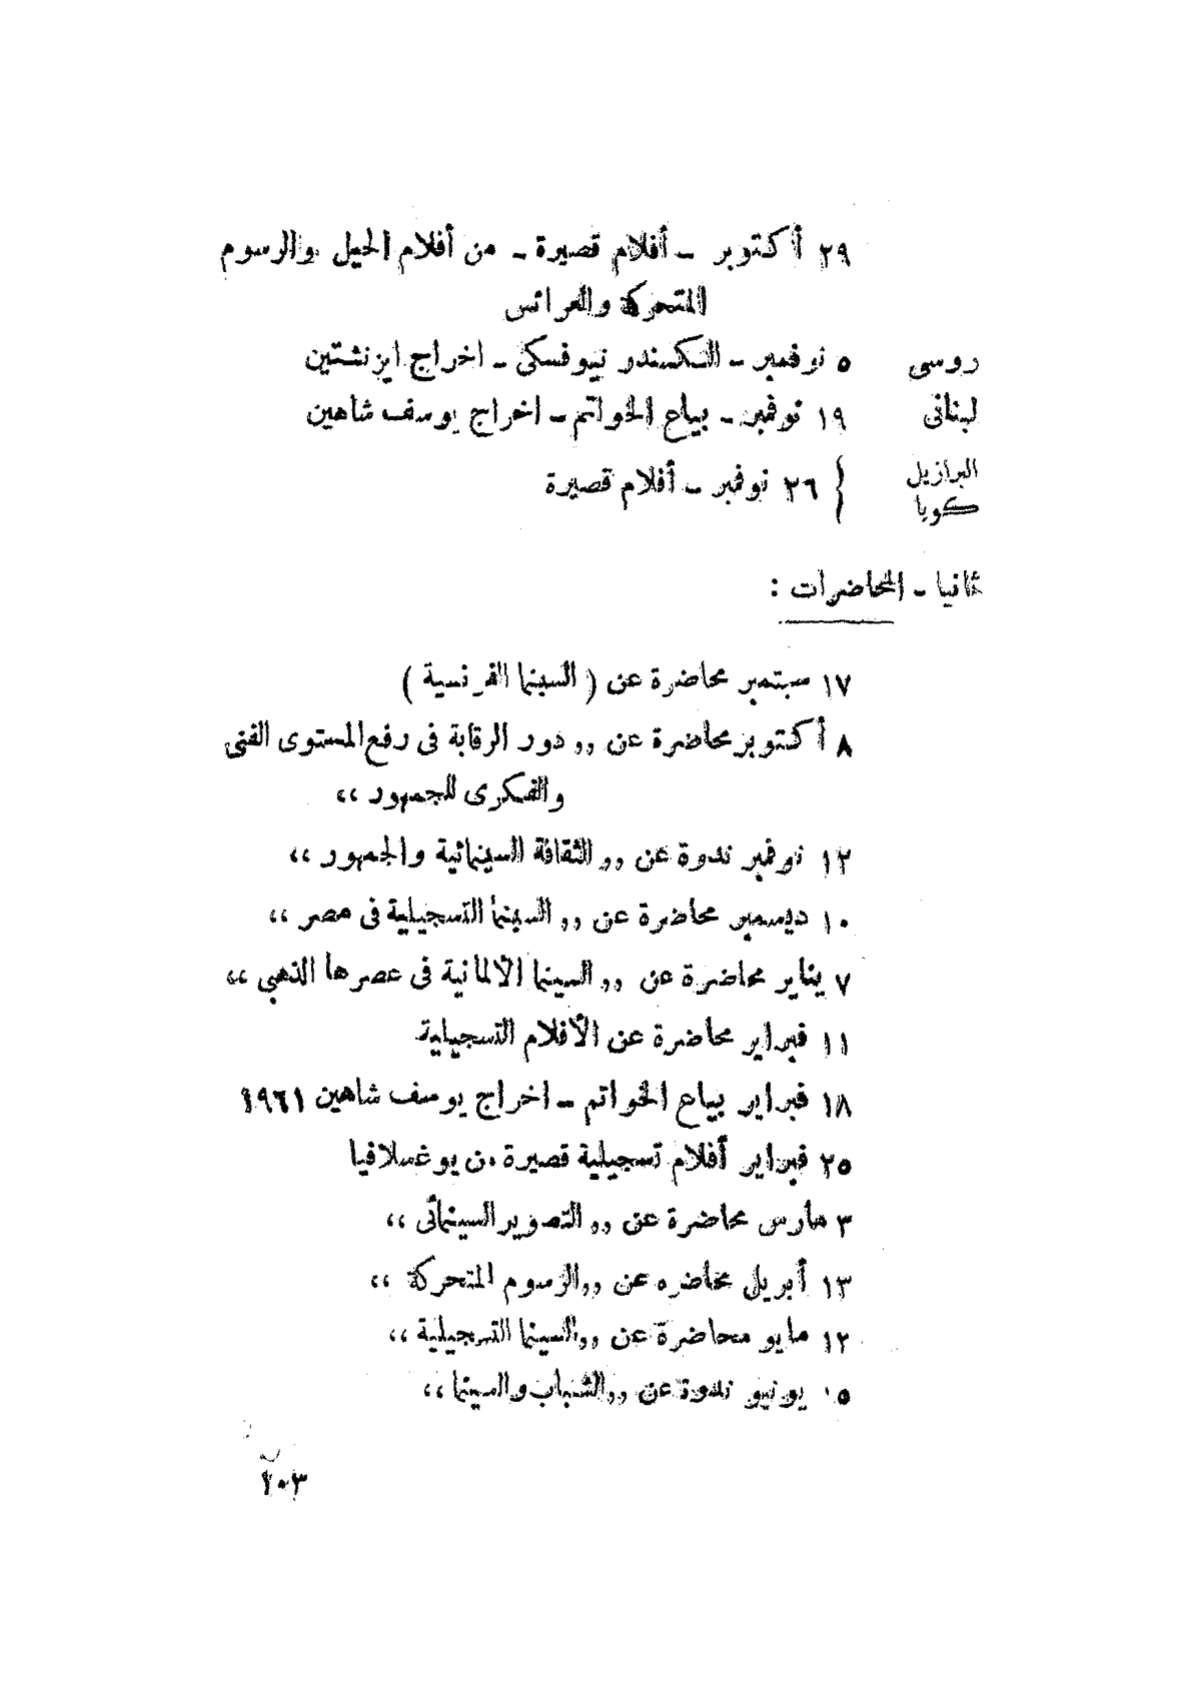 ٢٩ أكتوبر – أفلام قصيرة – من أفلام الحيل والرسوم
المتحركة والعرائس
روسى ٥ نوفمبر – الكسندر نيوفسكى – اخراج ايزنشتين
لبنانى ١٩ نوفمبر – بياع الخواتم – اخراج يوسف شاهين
البرازيل
كوبا } ٢٦ نوفمبر – أفلام قصيرة
ثانيا – المحاضرات :
١٧ سبتمبر محاضرة عن ( السينما الفرنسية )
٨ أكتوبر محاضرة عن ,, دور الرقابة فى رفع المستوى الفنى
والفكرى للجمهور ,,
١٢ نوفمبر ندوة عن ,, الثقافة السينمائية والجمهور ,,
١٠ ديسمبر محاضرة عن ,, السينما التسجيلية فى مصر ,,
٧ يناير محاضرة عن ,, السينما الألمانية فى عصرها الذهبي ,,
١١ فبراير محاضرة عن الأفلام التسجيلية
١٨ فبراير بياع الخواتم – اخراج يوسف شاهين ١٩٦١
٢٥ فبراير أفلام تسجيلية قصيرة من يوغسلافيا
٣ مارس محاضرة عن ,, التصوير السينمائى ,,
١٣ أبريل محاضره عن ,, الرسوم المتحركة ,,
١٢ مايو محاضرة عن ,, السينما التسجيلية ,,
١٥ يونيو ندوة عن ,, الشباب والسينما ,,
١٠٣